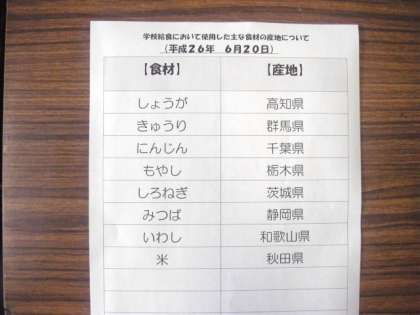 学校給食において使用した主な食材の産地について
(平成26年 6月20日)
【食材】 【産地】
しょうが 高知県
きゅうり 群馬県
にんじん 千葉県
もやし 栃木県
しろねぎ 茨城県
みつば 静岡県
いわし 和歌山県
米 秋田県